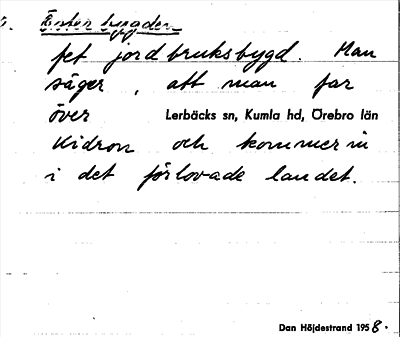 bygden
fet jordbruksbygd. Man
säger, att man far
över Lerbäcks sn, Kumla hd, Örebro län
Kidron och kommer in
i det förlovade landet.
Dan Höjdestrand 1958.